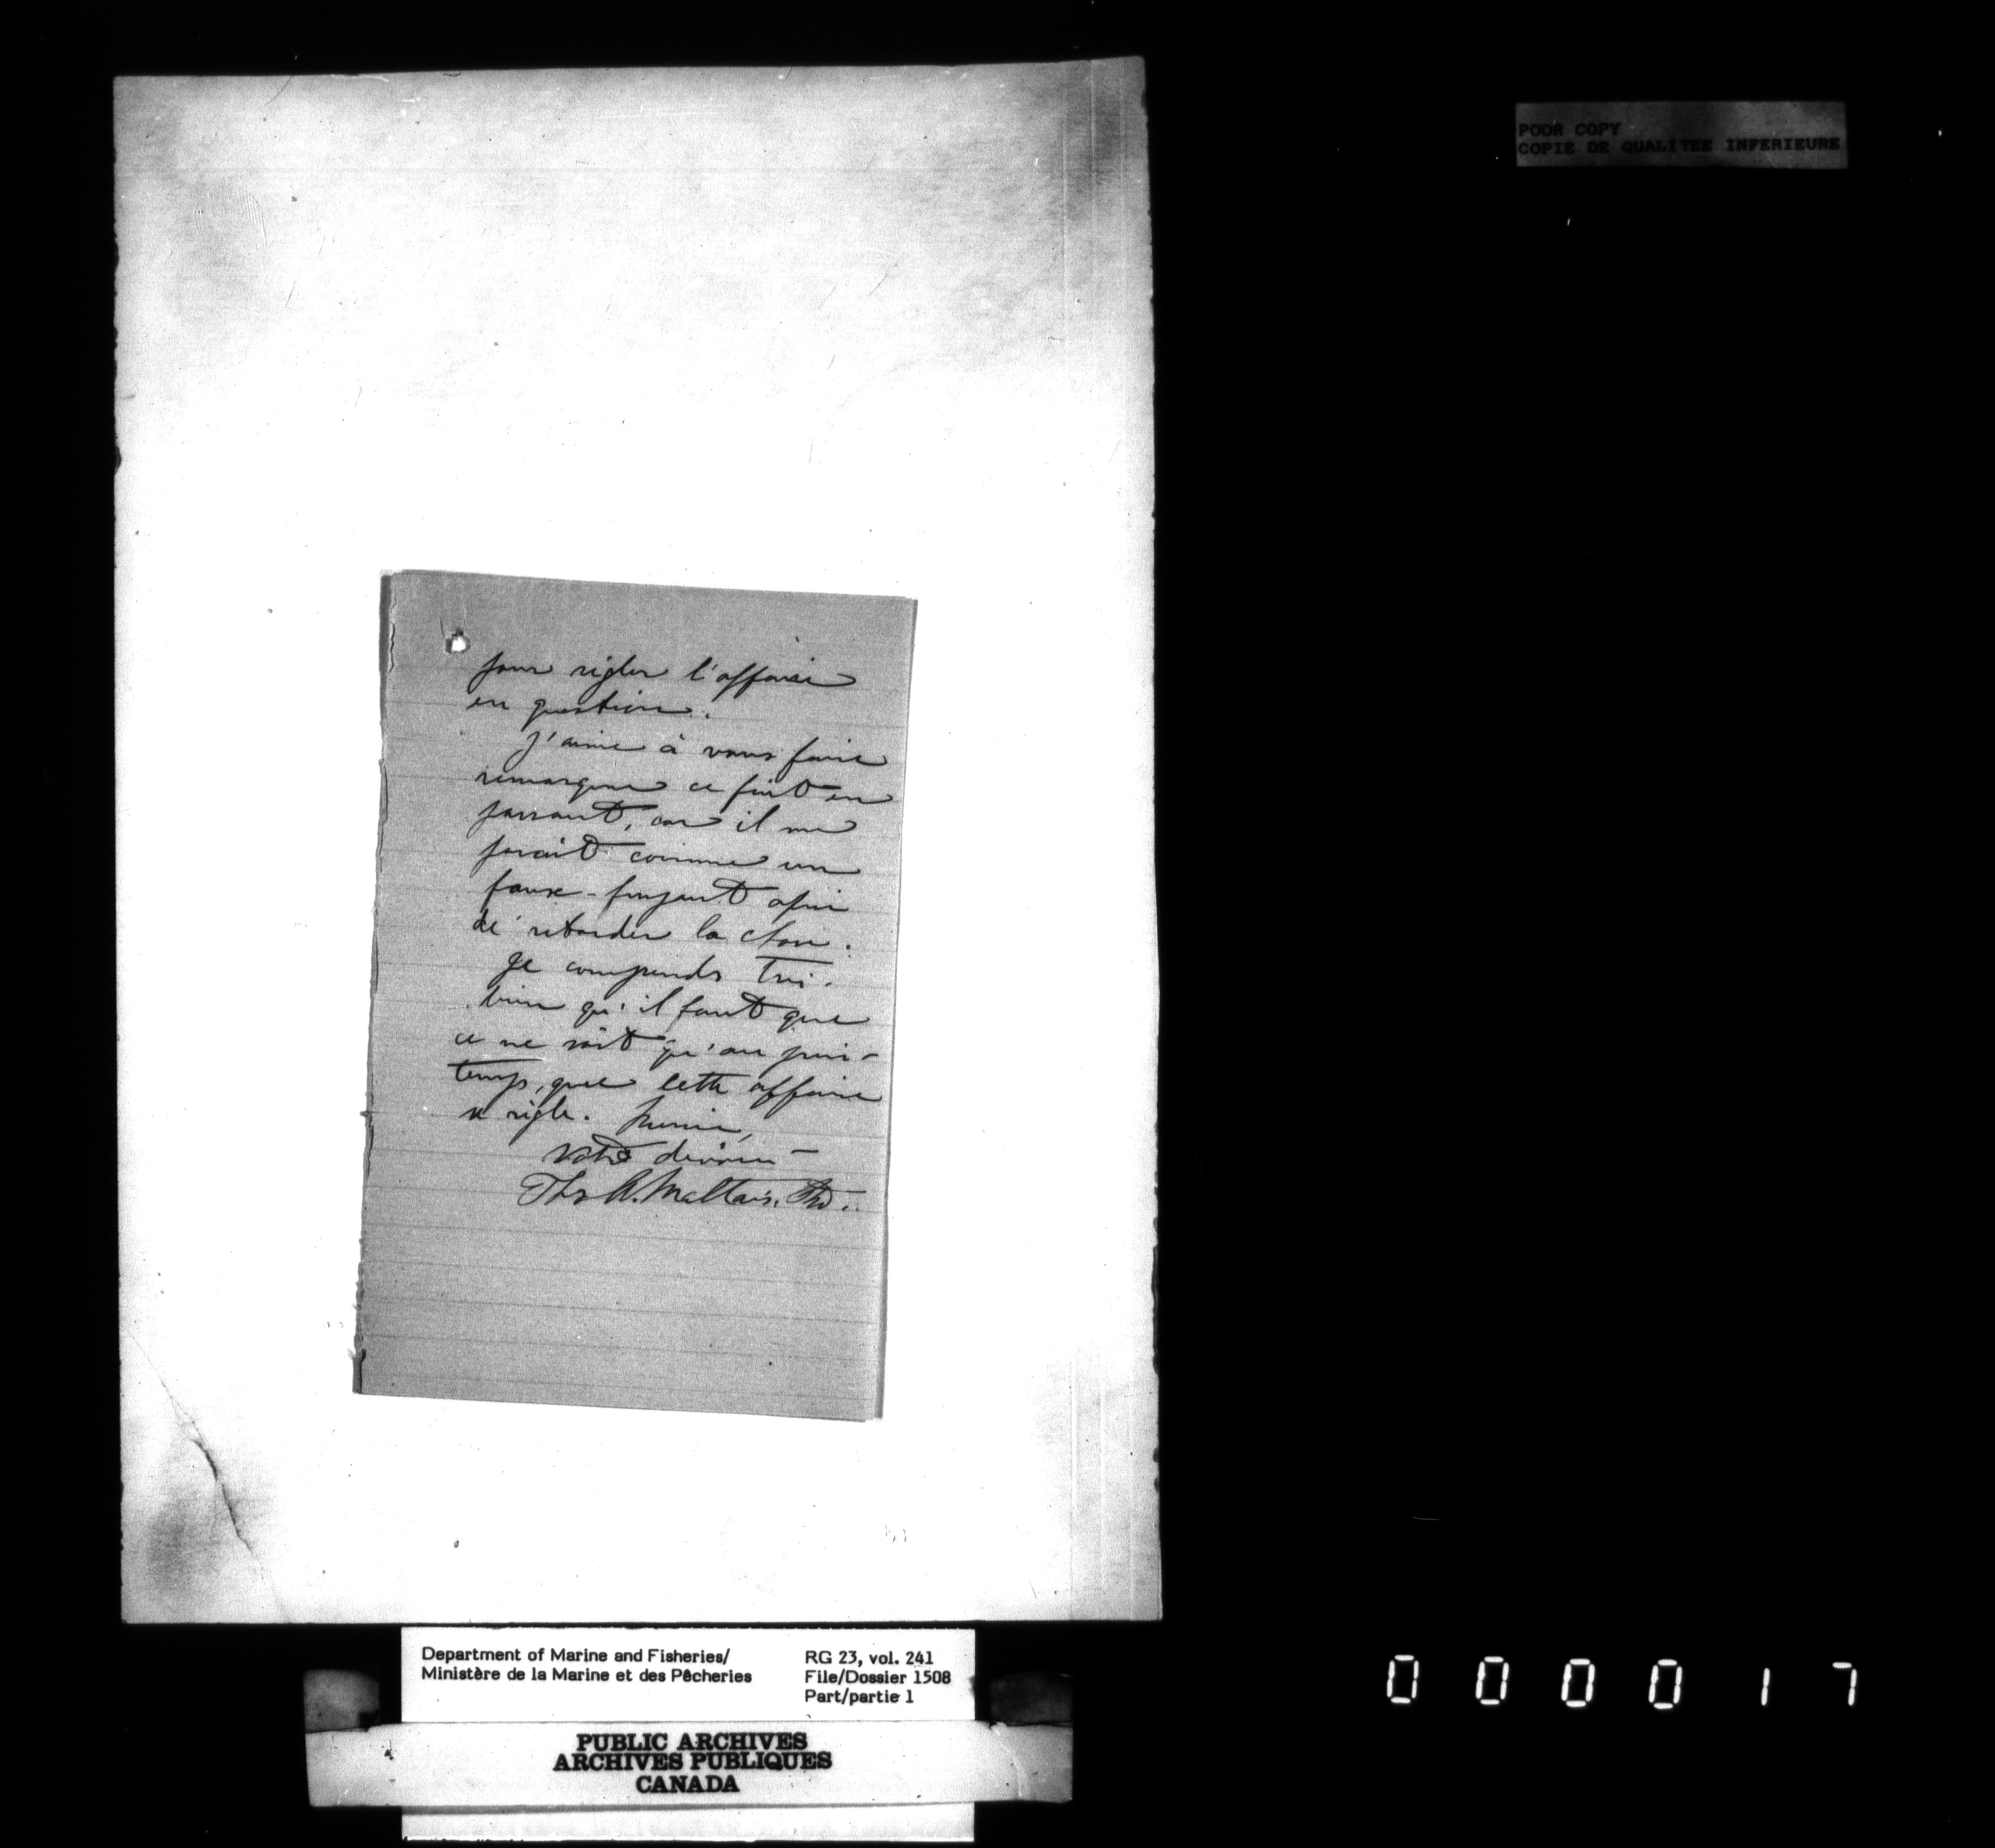 POOR COPY
COPIE DE QUALITEE INFERIEURE
pour régler l'affaire
en question.
J'aime à vous faire
remarquer ce fait en
passant, car il me
parait comme un
faux-fuyant afin
de retarder la chose.
Je comprends très-
bien qu'il faut que
ce ne soit qu'au prin-
temps, que cette affaire
se règle.
votre dévoué
Ths A. Maltais. Ptre.
Department of Marine and Fisheries/
Ministère de la Marine et des Pêcheries
RG 23, vol. 241
File/Dossier 1508
Part/partie 1
PUBLIC ARCHIVES
ARCHIVES PUBLIQUES
CANADA
000017